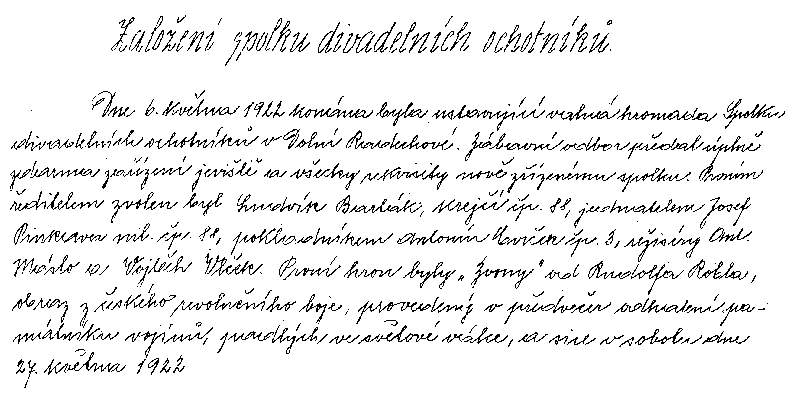 Založení spolku divadelních ochotníků.
Dne 6. května 1922 konána byla ustavující valná hromada Spolku
divadelních ochotníků v Dolní Radechové. Zábavní odbor předal úplně
zdarma zařízení jeviště a všechny rekvisity nově zřízenému spolku. Prvním
ředitelem zvolen byl Ludvík Barták, krejčí čp. 88, jednatelem Josef
Pinkava ml. čp. 88, pokladníkem Antonín čp. 3, režiséry Ant.
Máslo a Vojtěch Vlček. První hrou byly „Zvony" od Rudolfa Kobla,
obraz z českého revolučního boje, provedený v předvečer odhalení pa-
mátníku vojínů, padlých ve světové válce, a sice v sobotu dne
27. května 1922